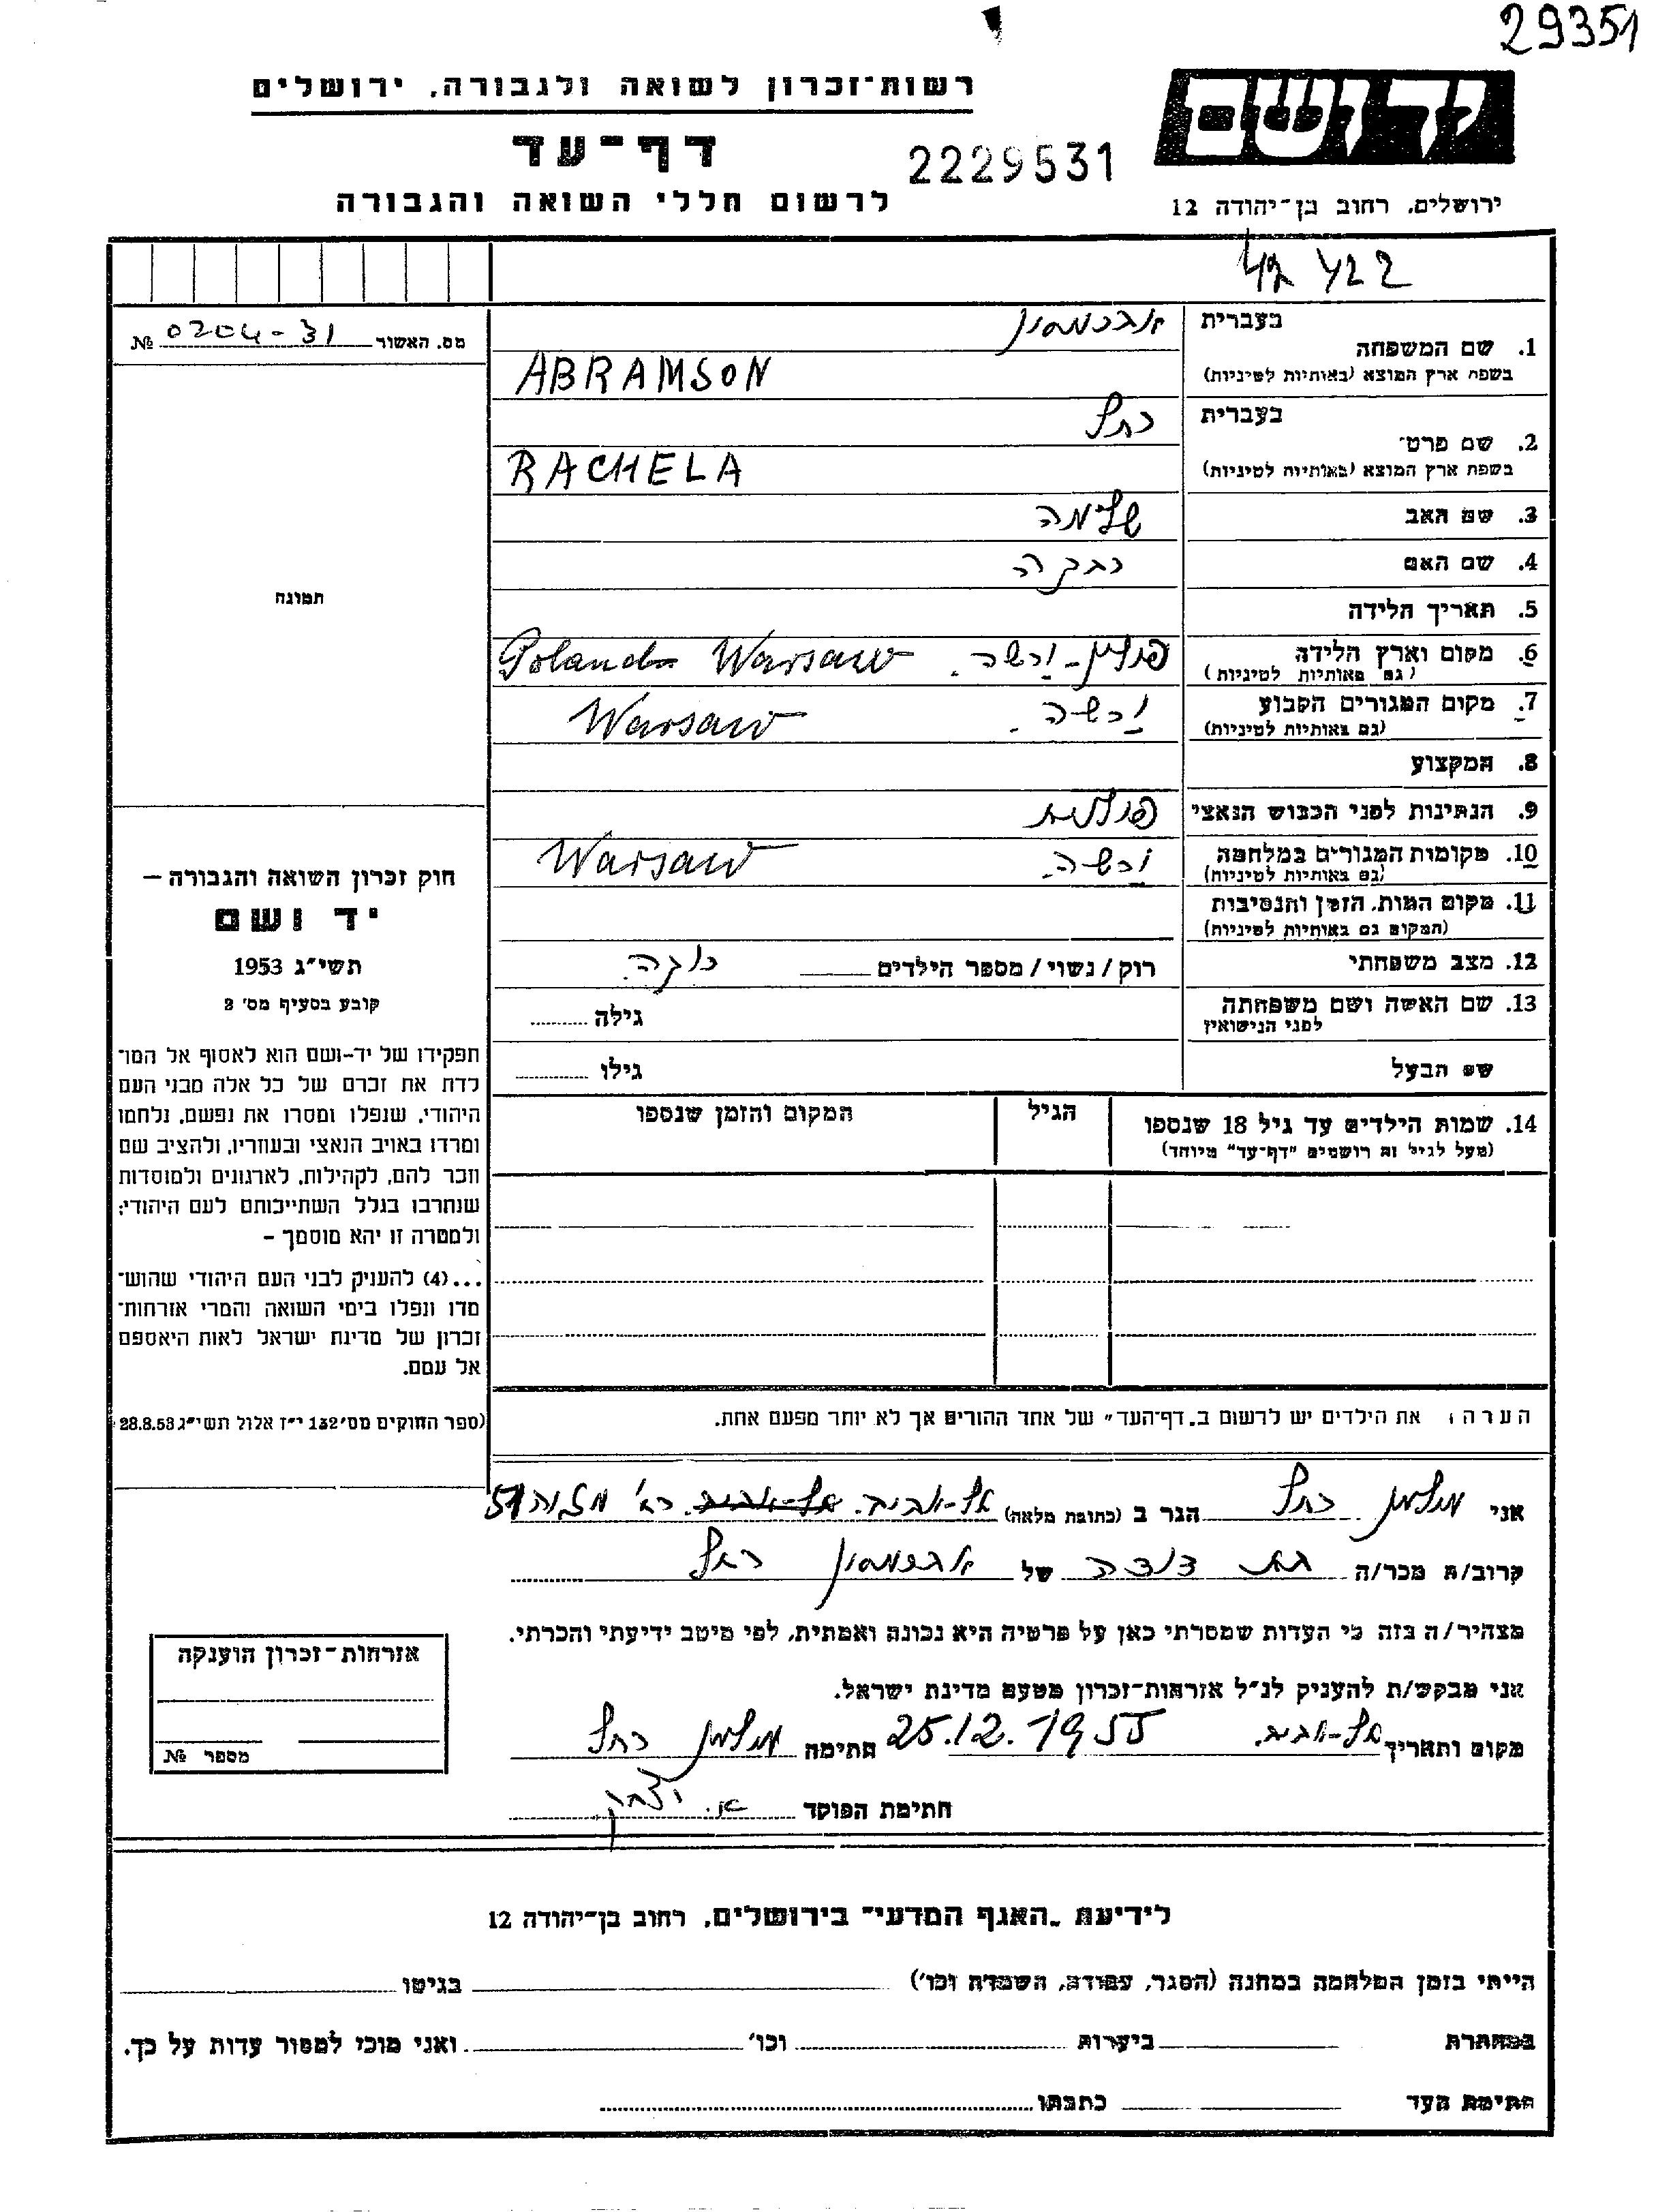 29351
רשות־זכרון לשואה ולגבורה, ירושלים
יד ושם
דף־עד
2229531
לרשום חללי השואה והגבורה
ירושלים, רחוב בן־יהודה 12
מס. האשור 0204-31 №
1. שם המשפחה
בעברית אברמסון
בשפת ארץ המוצא (באותיות לטיניות) ABRAMSON
2. שם פרטי
בעברית רחל
בשפת ארץ המוצא (באותיות לטיניות) RACHELA
3. שם האב שלמה
4. שם האם רבקה
5. תאריך הלידה
6. מקום וארץ הלידה פולין - ורשה. Poland Warsaw
(גם באותיות לטיניות)
7. מקום המגורים הקבוע ורשה. Warsaw
(גם באותיות לטיניות)
8. המקצוע
9. הנתינות לפני הכבוש הנאצי פולנית
10. מקומות המגורים במלחמה ורשה. Warsaw
(גם באותיות לטיניות)
11. מקום המות, הזמן והנסיבות
(המקום גם באותיות לטיניות)
12. מצב משפחתי רוק / נשוי / מספר הילדים רוקה.
13. שם האשה ושם משפחתה
לפני הנישואין
גילה
שם הבעל גילו
14. שמות הילדים עד גיל 18 שנספו הגיל המקום והזמן שנספו
(מעל לגיל זה רושמים "דף־עד" מיוחד)
הערה: את הילדים יש לרשום ב"דף־העד" של אחד ההורים אך לא יותר מפעם אחת.
תמונה
חוק זכרון השואה והגבורה –
יד ושם
תשי"ג 1953
קובע בסעיף מס' 2
תפקידו של יד-ושם הוא לאסוף אל המו־
לדת את זכרם של כל אלה מבני העם
היהודי, שנפלו ומסרו את נפשם, נלחמו
ומרדו באויב הנאצי ובעוזריו, ולהציב שם
וזכר להם, לקהילות, לארגונים ולמוסדות
שנחרבו בגלל השתייכותם לעם היהודי;
ולמטרה זו יהא מוסמך –
...(4) להעניק לבני העם היהודי שהוש־
מדו ונפלו בימי השואה והמרי אזרחות־
זכרון של מדינת ישראל לאות היאספם
אל עמם.
(ספר החוקים מס' 132 י"ז אלול תשי"ג 28.8.53)
אני מילמן רחל הגר ב (כתובת מלאה) תל-אביב. תל-אביב. רח' מזא"ה 51
קרוב/ה מכר/ה בת דודה של אברמסון רחל
מצהיר/ה בזה כי העדות שמסרתי כאן על פרטיה היא נכונה ואמתית, לפי מיטב ידיעתי והכרתי.
אני מבקש/ת להעניק לנ"ל אזרחות־זכרון מטעם מדינת ישראל.
מקום ותאריך תל-אביב. 25.12.1955 חתימה מילמן רחל
חתימת הפוקד א. יצחק
אזרחות־זכרון הוענקה
מספר №
לידיעת "האגף המדעי" בירושלים, רחוב בן־יהודה 12
הייתי בזמן המלחמה במחנה (הסגר, עבודה, השמדה וכו') בגיטו
במחתרת ביערות וכו' ואני מוכן למסור עדות על כך.
חתימת העד כתבתו